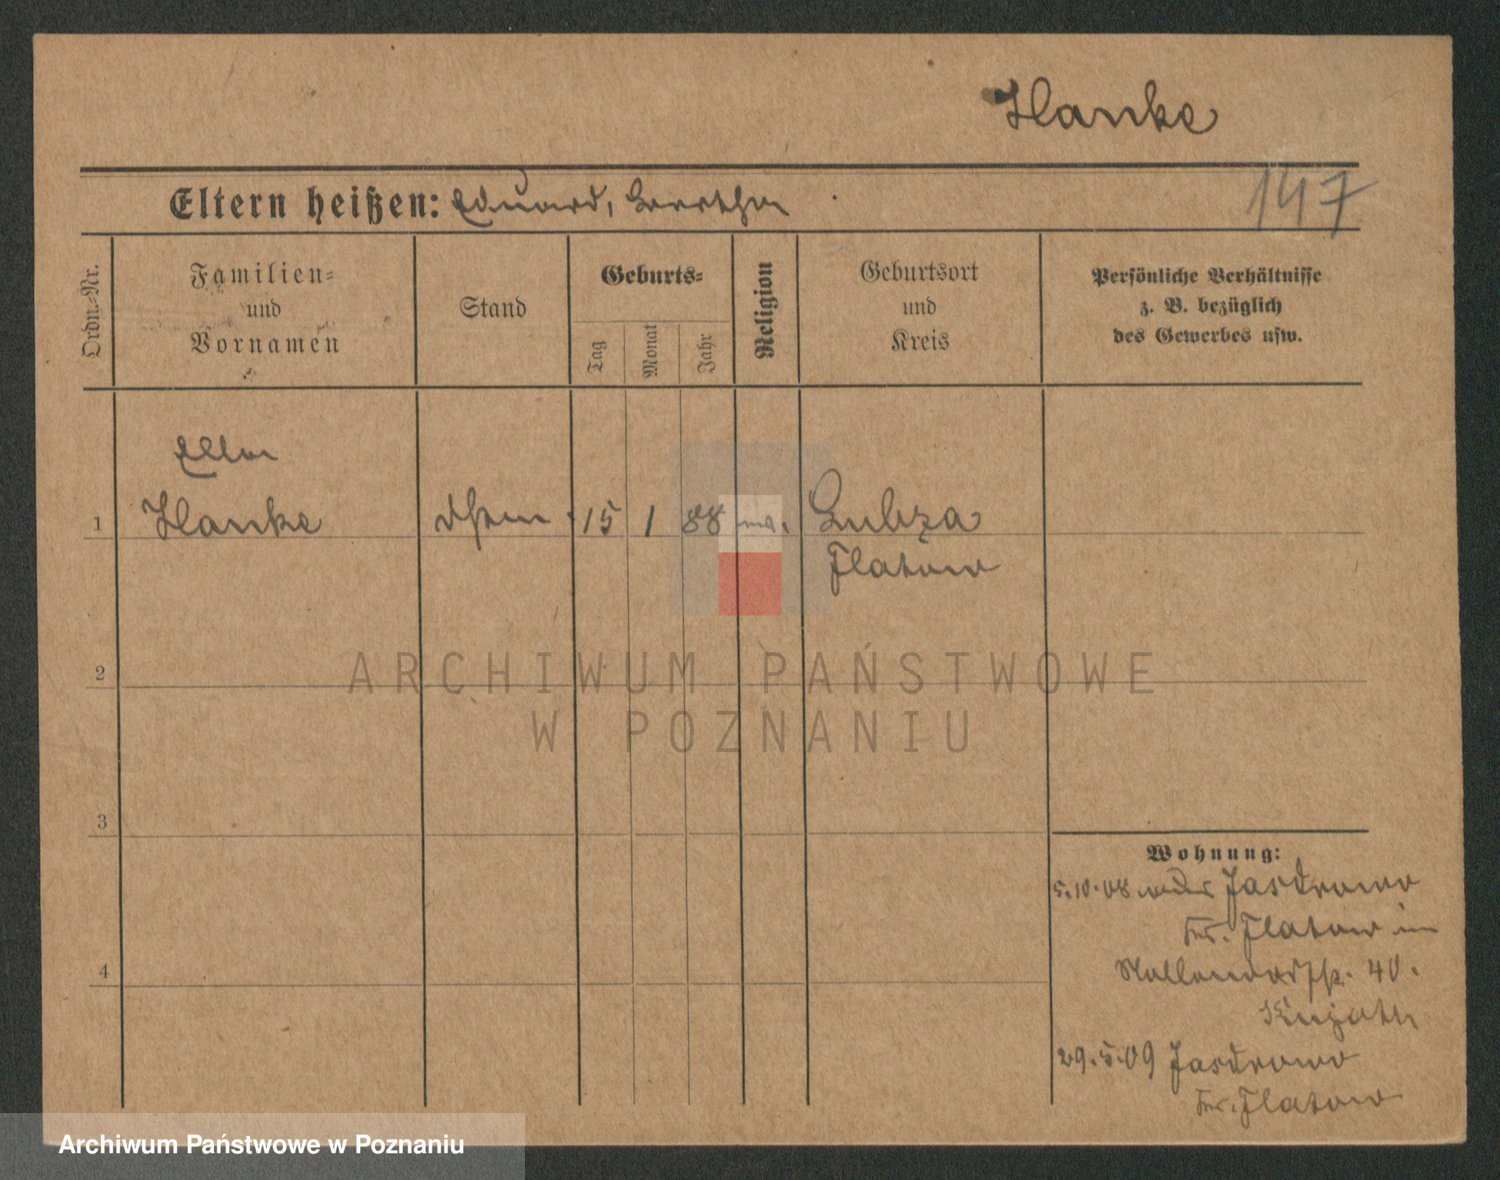 Hanke
147
Eltern heißen: Eduard, Bertha
Ordn.-Nr.
Familien-
und
Vornamen
Stand
Geburts-
Tag
Monat
Jahr
Religion
Geburtsort
und
Kreis
Persönliche Verhältnisse
z. B. bezüglich
des Gewerbes usw.
Ella
1 Hanke 15 1 88 Lubza
Flatow
2
3
4
ARCHIWUM PAŃSTWOWE
W POZNANIU
Wohnung:
5.10.08 Jastrowo
Kr. Flatow in
40.
Kujath
29.5.09 Jastrowo
Kr. Flatow
Archiwum Państwowe w Poznaniu